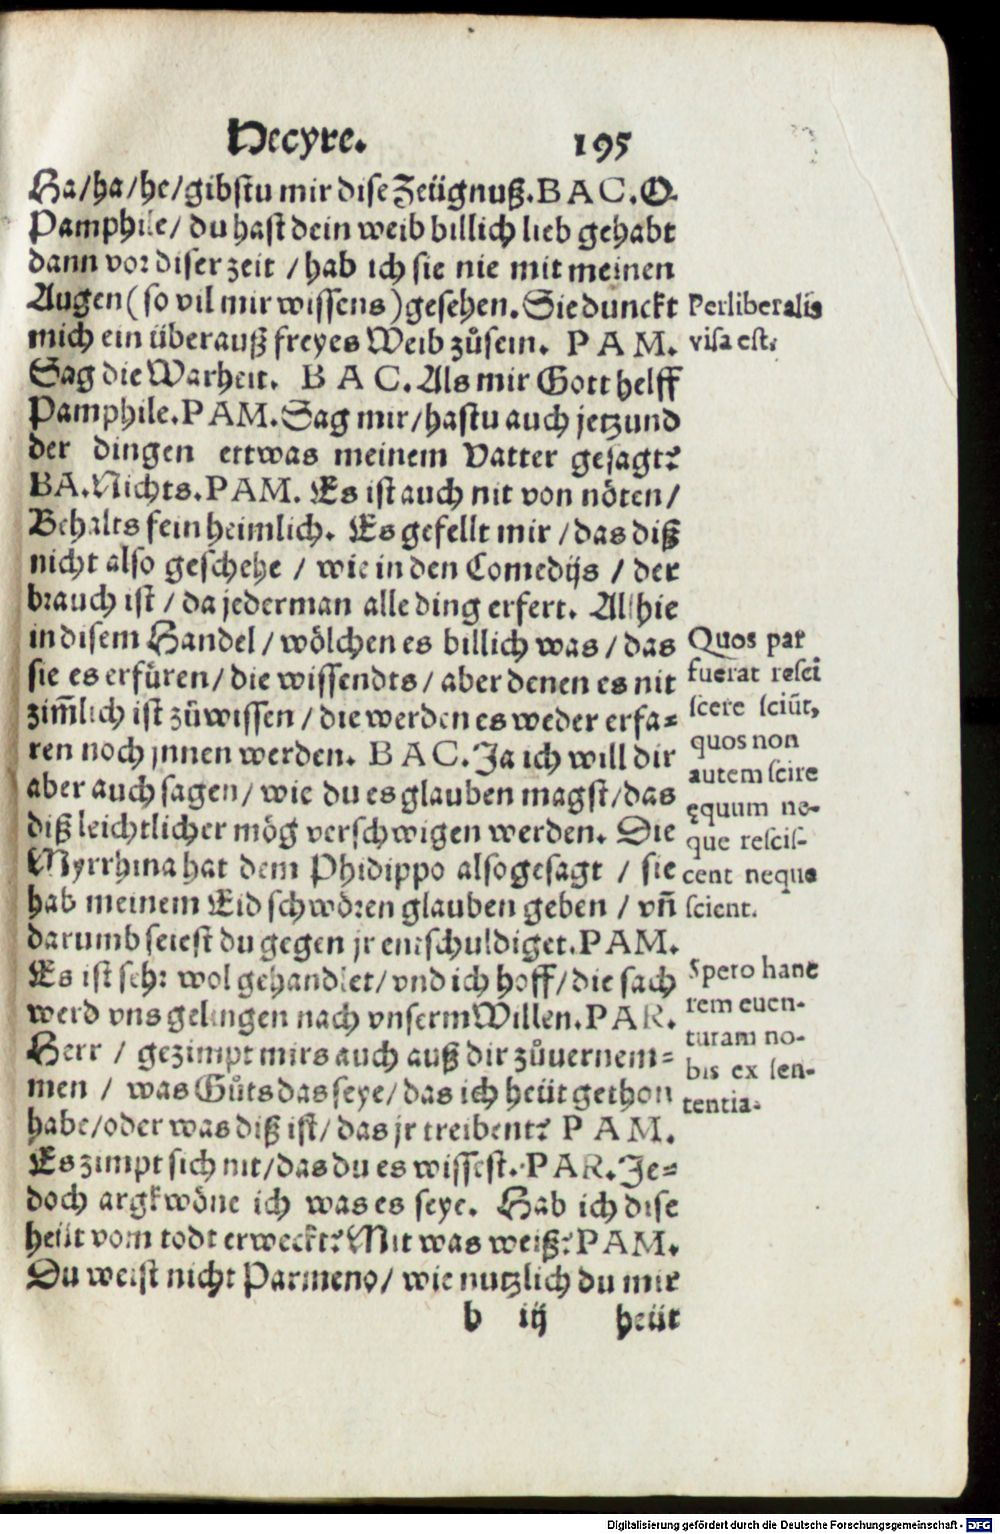 Hecyre. 195
Ha/ha/he/gibstu mir dise Zeügnuß. BAC. O
Pamphile/ du hast dein weib billich lieb gehabt
dann vor diser zeit / hab ich sie nie mit meinen
Augen (so vil mir wissens) gesehen. Sie dunckt
mich ein überauß freyes Weib zůsein. PAM.
Sag die Warheit. BAC. Als mir Gott helff
Pamphile. PAM. Sag mir/hastu auch jetzund
der dingen ettwas meinem Vatter gesagt?
BA. Nichts. PAM. Es ist auch nit von nöten/
Behalts fein heimlich. Es gefellt mir / das diß
nicht also geschehe / wie in den Comedijs / der
brauch ist / da jederman alle ding erfert. Alhie
in disem Handel / wölchen es billich was / das
sie es erfüren/ die wissendts / aber denen es nit
zim̃lich ist zůwissen / die werden es weder erfa=
ren noch jnnen werden. BAC. Ja ich will dir
aber auch sagen/ wie du es glauben magst/das
diß leichtlicher mög verschwigen werden. Die
Myrrhina hat dem Phidippo also gesagt / sie
hab meinem Eid schwören glauben geben / vñ
darumb seiest du gegen jr entschuldiget. PAM.
Es ist sehr wol gehandlet/ vnd ich hoff/ die sach
werd vns gelingen nach vnserm Willen. PAR.
Herr / gezimpt mirs auch auß dir zůvernem=
men / was Gůts das seye/ das ich heüt gethon
habe/oder was diß ist/ das jr treibent? PAM.
Es zimpt sich nit/das du es wissest. PAR. Je=
doch argkwöne ich was es seye. Hab ich dise
heüt vom todt erweckt? Mit was weiß? PAM.
Du weist nicht Parmeno/ wie nutzlich du mir
b iij heüt
Perliberalis
visa est.
Quos par
fuerat resci
scere sciũt,
quos non
autem scire
ęquum ne-
que rescis-
cent neque
scient.
Spero hanc
rem euen-
turam no-
bis ex sen-
tentia.
Digitalisierung gefördert durch die Deutsche Forschungsgemeinschaft - DFG